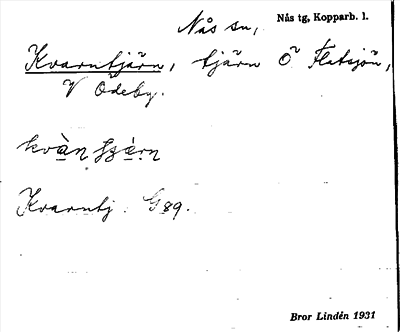 Nås sn, Nås tg, Kopparb. l.
Kvarntjärn, tjärn Ö Flatsjön,
V Ödeby.
Kvarntj. G 89.
Bror Lindén 1931